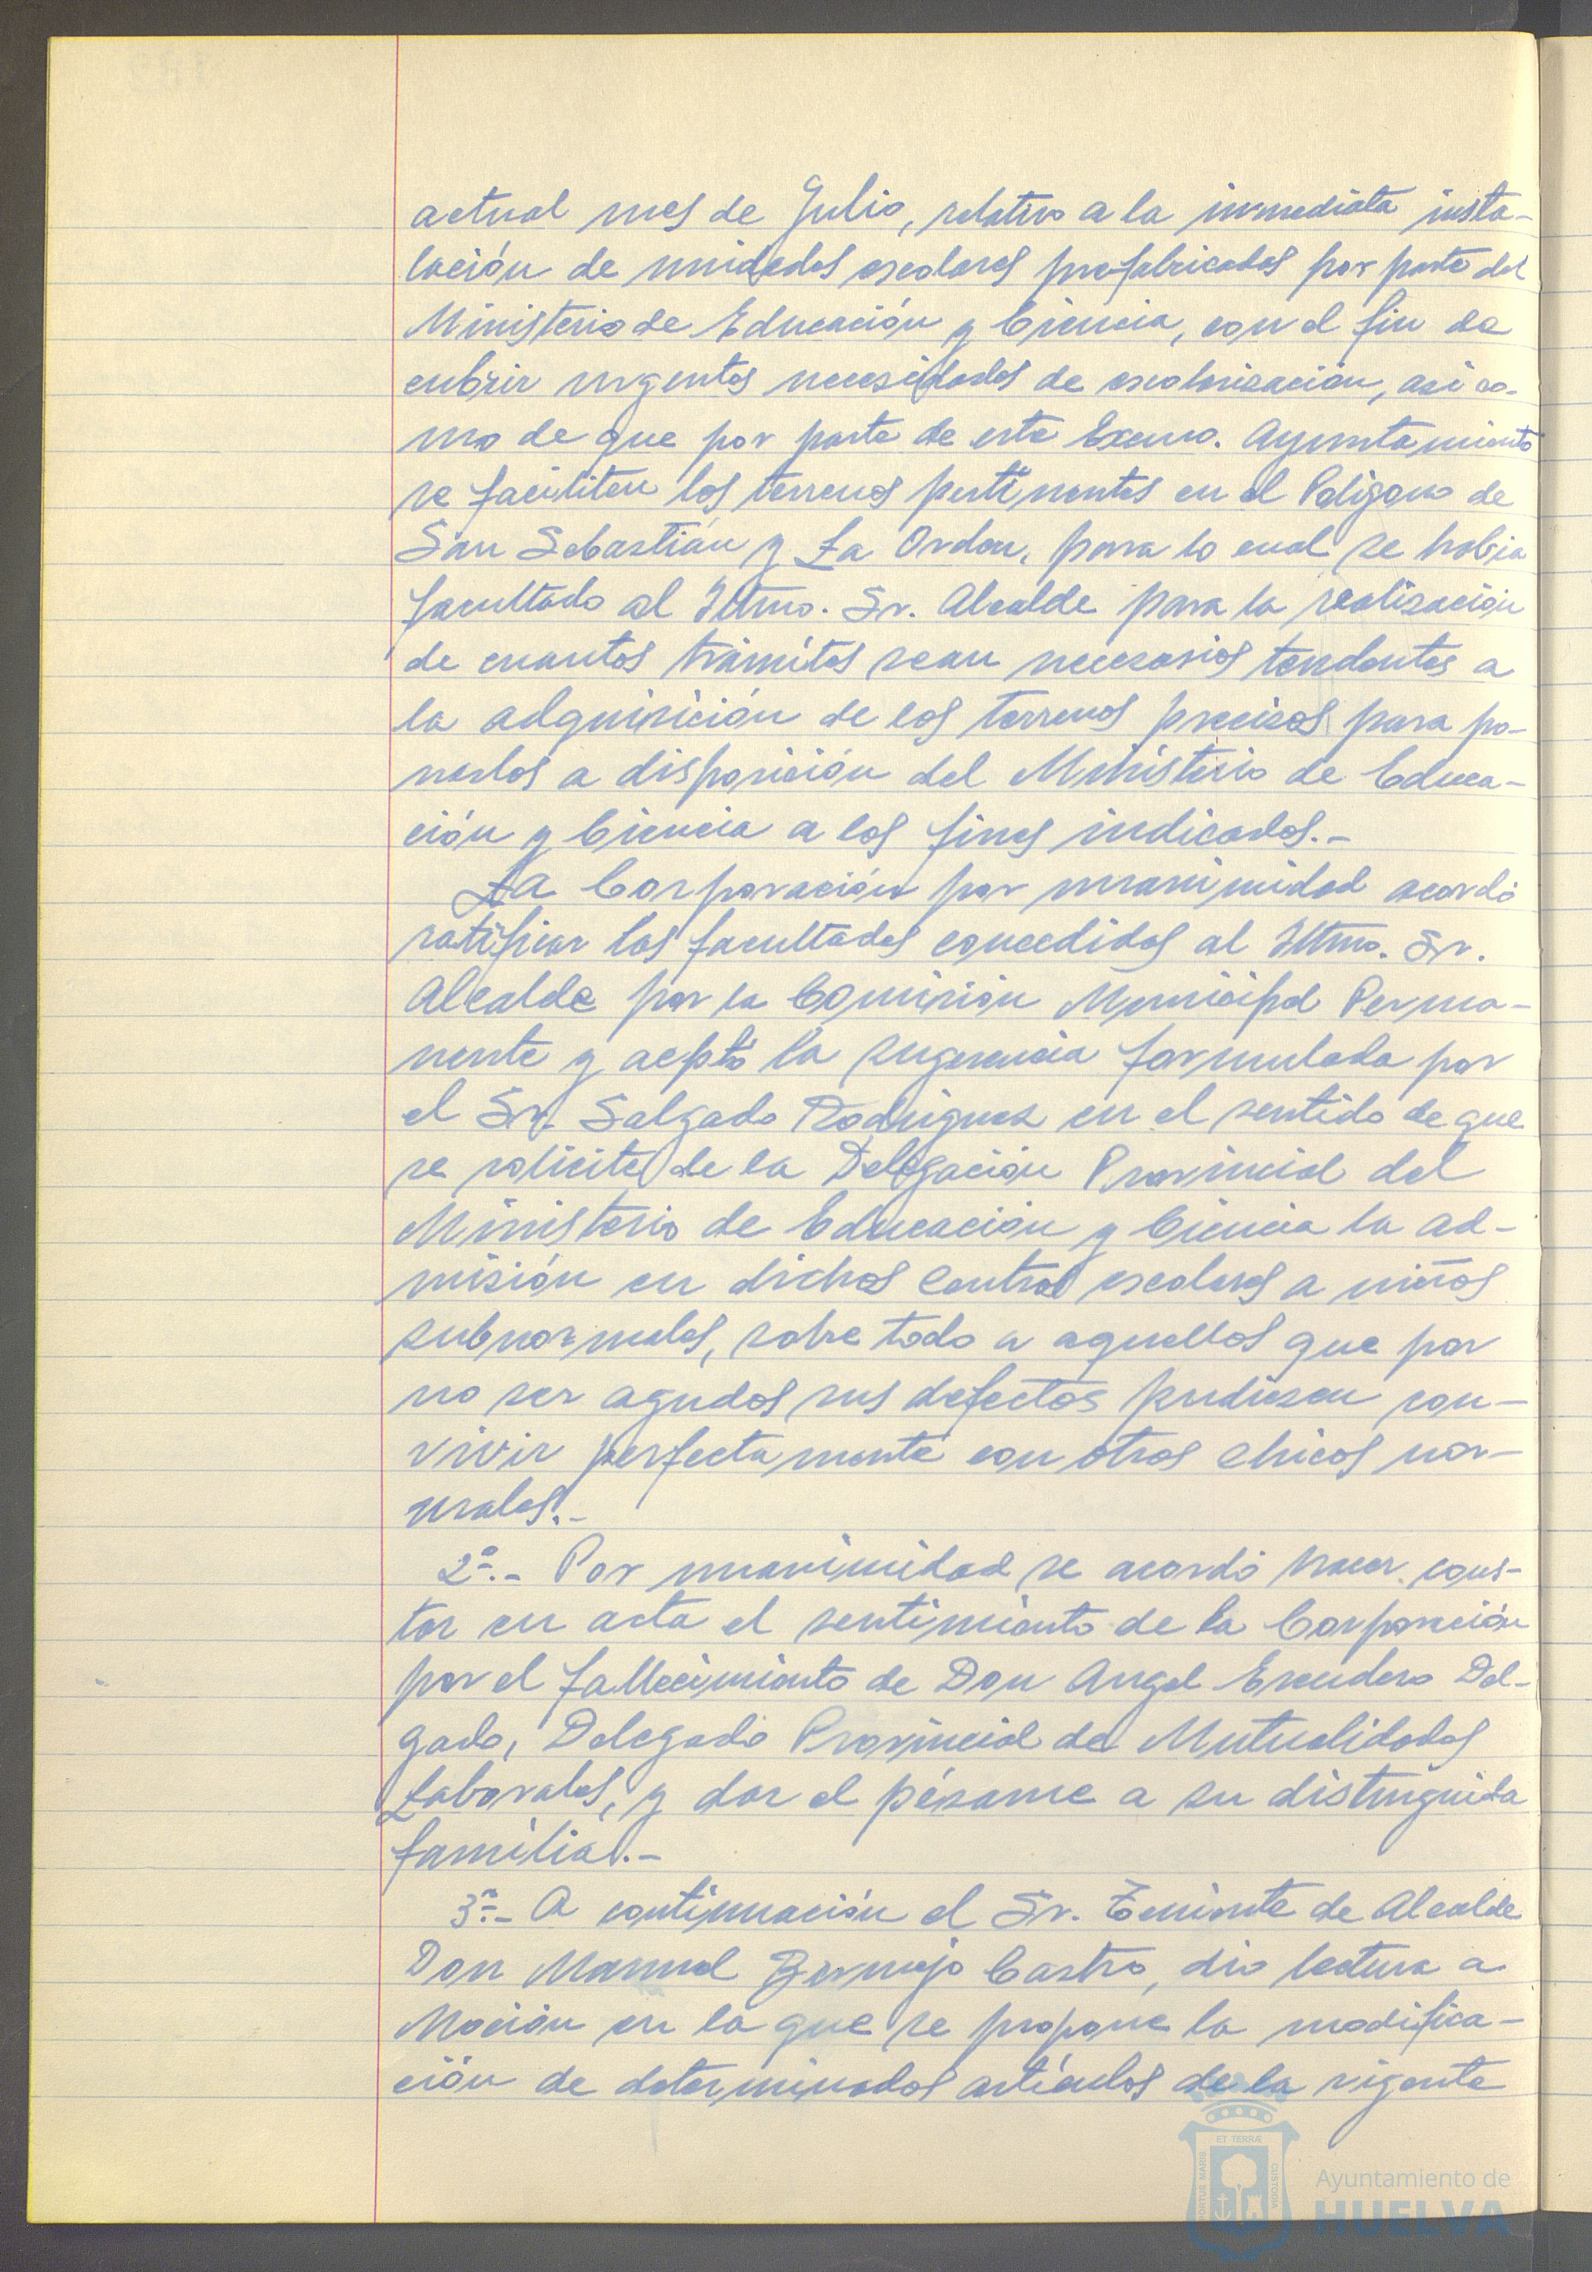 actual mes de Julio, relativo a la inmediata insta-
lación de unidades escolares prefabricadas por parte del
Ministerio de Educación y Ciencia, con el fin de
cubrir urgentes necesidades de escolarización, así co-
mo de que por parte de este Excmo. Ayuntamiento
se faciliten los terrenos pertinentes en el Polígono de
San Sebastián y La Orden, para lo cual se había
facultado al Iltmo. Sr. Alcalde para la realización
de cuantos trámites sean necesarios tendentes a
la adquisición de los terrenos precisos para po-
nerlos a disposición del Ministerio de Educa-
ción y Ciencia a los fines indicados.-
La Corporación por unanimidad acordó
ratificar las facultades concedidas al Iltmo. Sr.
Alcalde por la Comisión Municipal Perma-
nente y aceptó la sugerencia formulada por
el Sr. Salgado Rodríguez en el sentido de que
se solicite de la Delegación Provincial del
Ministerio de Educación y Ciencia la ad-
misión en dichos Centros escolares a niños
subnormales, sobre todo a aquellos que por
no ser agudos sus defectos pudiesen con-
vivir perfectamente con otros chicos nor-
males.-
2º.- Por unanimidad se acordó hacer cons-
tar en acta el sentimiento de la Corporación
por el fallecimiento de Don Angel Escudero Del-
gado, Delegado Provincial de Mutualidades
Laborales, y dar el pésame a su distinguida
familia.-
3º.- A continuación el Sr. Teniente de Alcalde
Don Manuel Bermejo Castro, dio lectura a
Moción en la que se propone la modifica-
ción de determinados artículos de la vigente
ET TERRÆ
PORTUS MARIS
CUSTODIA
Ayuntamiento de
HUELVA